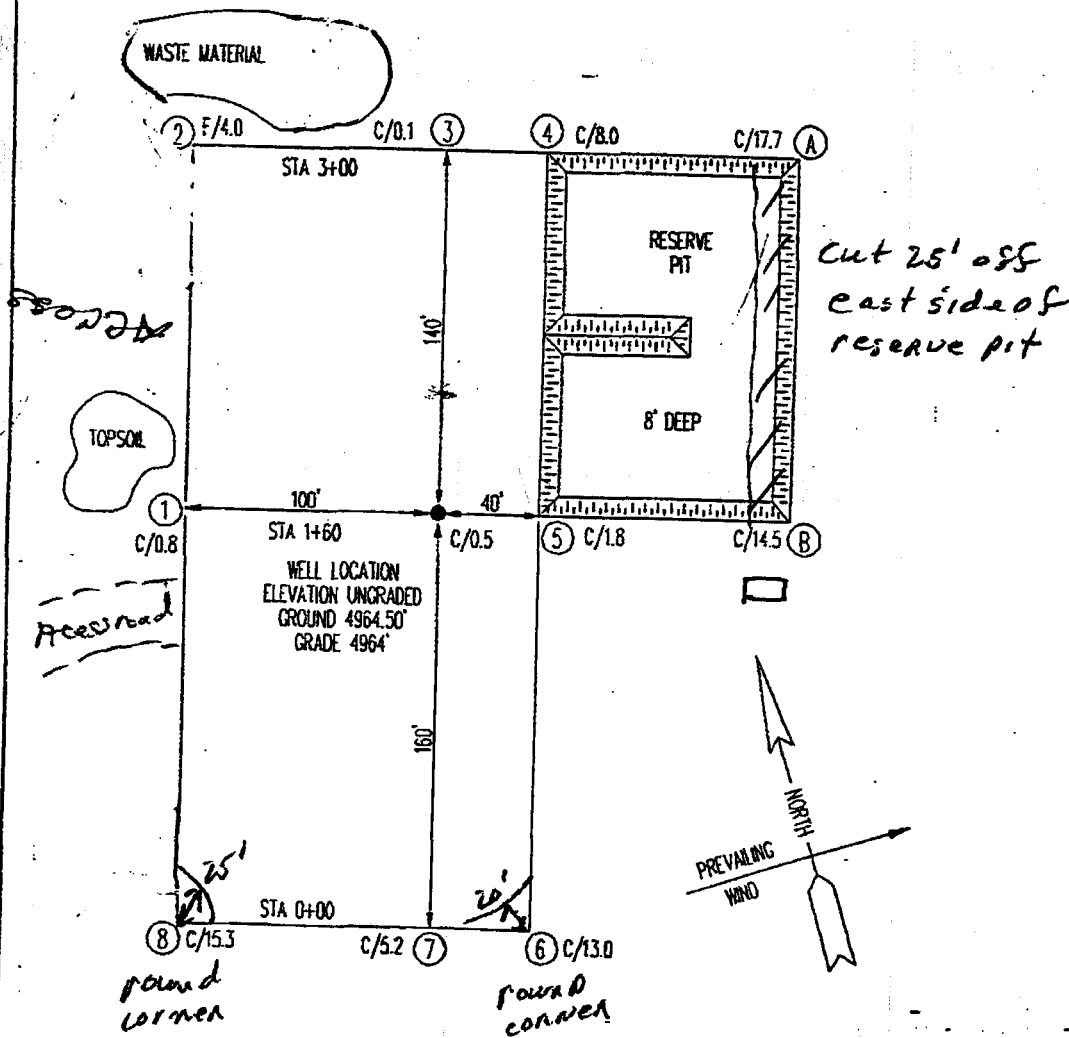 WASTE MATERIAL
2 F/4.0 C/0.1 3 4 C/8.0 C/17.7 A
STA 3+00
RESERVE
PIT
Cut 25' off
east side of
reserve pit
Access
140'
TOPSOIL
8' DEEP
1 100' 40'
C/0.8 STA 1+60 C/0.5 5 C/1.8 C/14.5 B
WELL LOCATION
ELEVATION UNGRADED
GROUND 4964.50'
GRADE 4964'
Acessroad
160'
NORTH
PREVAILING
WIND
25' 20'
STA 0+00
8 C/15.3 C/5.2 7 6 C/13.0
round
corner
round
conner